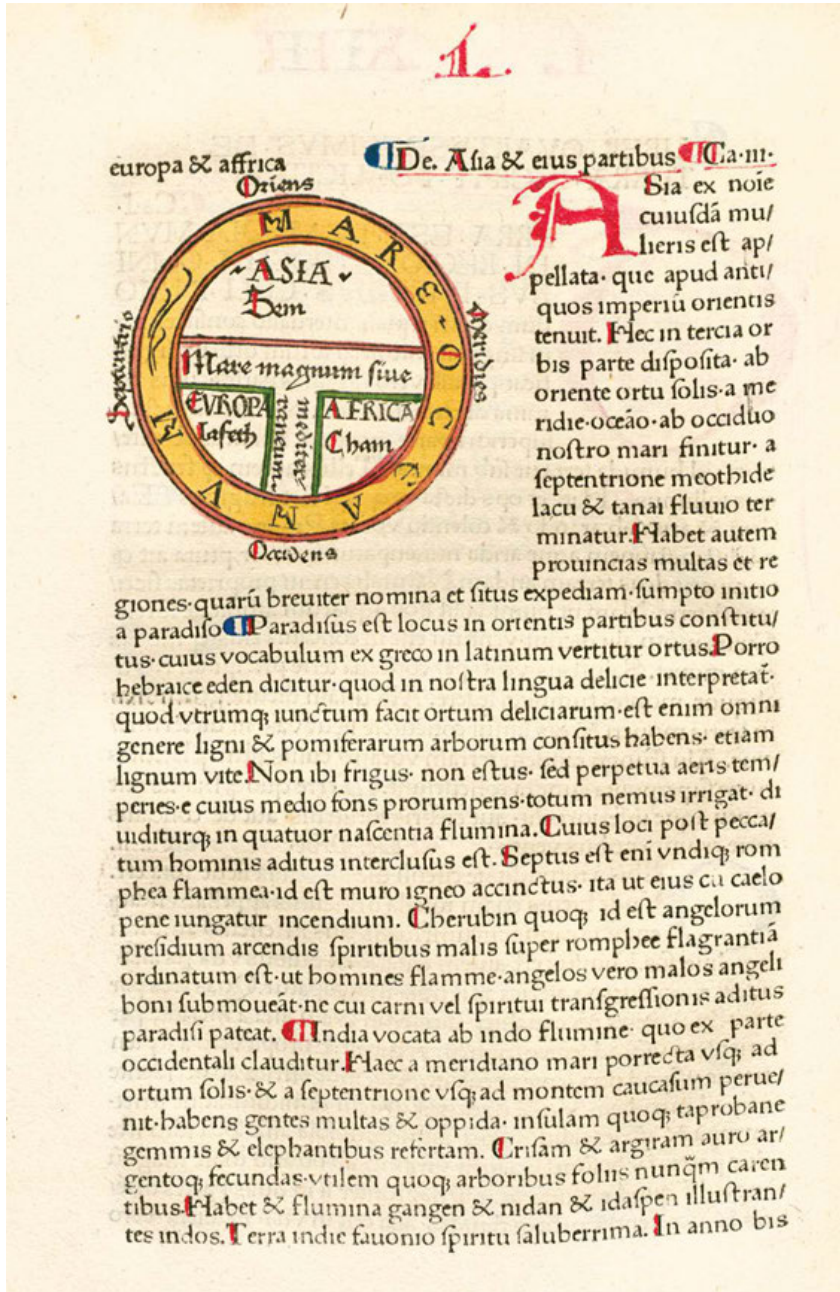 1.
europa & affrica
¶De. Asia & eius partibus ¶Ca·iii·
Oriens
MARE OCEANUM
Septentrio
Meridies
ASIA
Sem
Mare magnum siue
mediterraneum
EVROPA
Iafeth
AFRICA
Cham
Occidens
ASia ex noīe
cuiusdā mu/
lieris est ap/
pellata· que apud anti/
quos imperiū orientis
tenuit. Hec in tercia or
bis parte disposita· ab
oriente ortu solis·a me
ridie·oceāo·ab occiduo
nostro mari finitur· a
septentrione meothide
lacu & tanai fluuio ter
minatur. Habet autem
prouincias multas et re
giones·quarū breuiter nomina et situs expediam·sumpto initio
a paradiso ¶Paradisus est locus in orientis partibus constitu/
tus·cuius vocabulum ex greco in latinum vertitur ortus. Porro
hebraice eden dicitur·quod in nostra lingua delicie interpretat̄·
quod vtrumq; iunctum facit ortum deliciarum·est enim omni
genere ligni & pomiferarum arborum consitus habens· etiam
lignum vite. Non ibi frigus· non estus· sed perpetua aeris tem/
peries·e cuius medio fons prorumpens·totum nemus irrigat· di
uiditurq; in quatuor nascentia flumina. Cuius loci post pecca/
tum hominis aditus interclusus est. Septus est enī vndiq; rom
phea flammea·id est muro igneo accinctus· ita ut eius cū caelo
pene iungatur incendium. Cherubin quoq; id est angelorum
presidium arcendis spiritibus malis super romphee flagrantiā
ordinatum est·ut homines flamme·angelos vero malos angeli
boni submoueāt·ne cui carni vel spiritui transgressionis aditus
paradisi pateat. ¶India vocata ab indo flumine· quo ex parte
occidentali clauditur. Haec a meridiano mari porrecta vsq; ad
ortum solis·& a septentrione vsq; ad montem caucasum perue/
nit·habens gentes multas & oppida· insulam quoq; taprobane
gemmis & elephantibus refertam. Crisam & argiram auro ar/
gentoq; fecundas·vtilem quoq; arboribus foliis nunq̄m caren
tibus. Habet & flumina gangen & nidan & idaspen illustran/
tes indos. Terra indie fauonio spiritu saluberrima. In anno bis